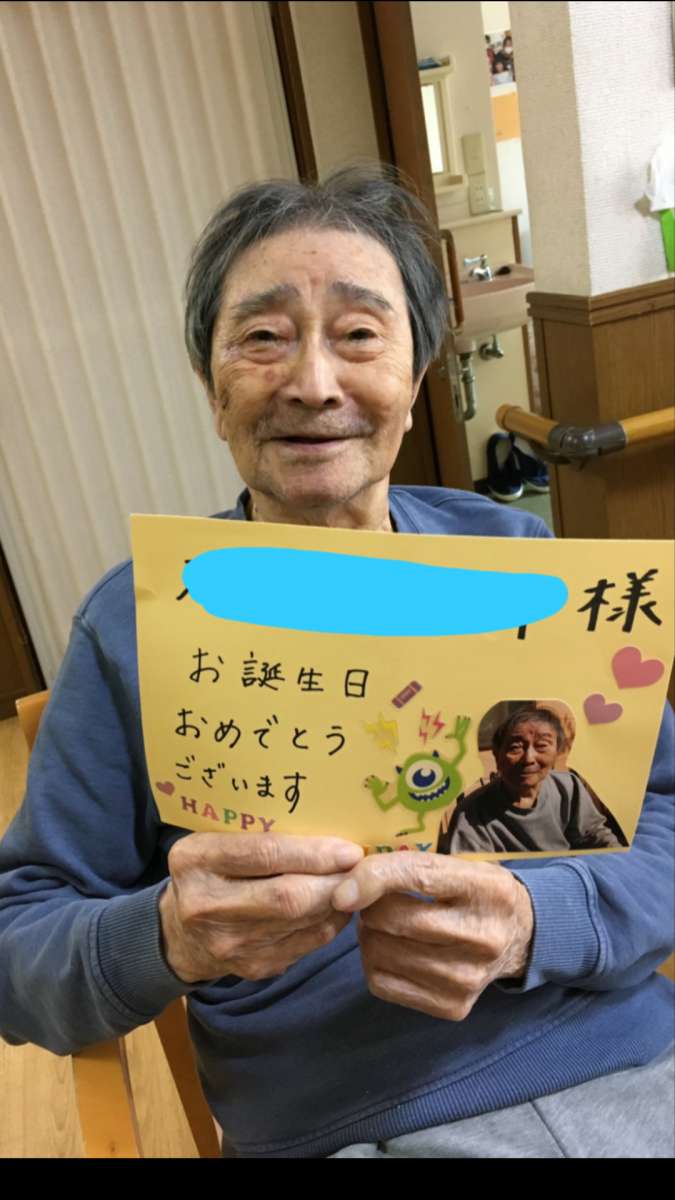 様
お誕生日
おめでとう
ございます
HAPPY